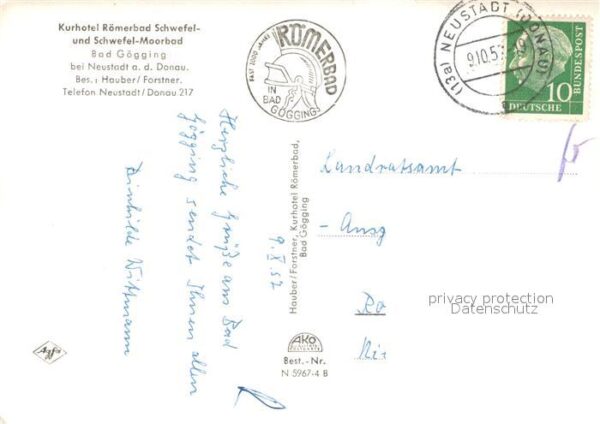 Kurhotel Römerbad Schwefel-
und Schwefel-Moorbad
Bad Gögging
bei Neustadt a. d. Donau.
Bes.: Hauber/Forstner.
Telefon Neustadt/Donau 217
FAST 2000 JAHRE
RÖMERBAD
IN
BAD
GÖGGING
(13a) NEUSTADT (DONAU)
9.10.57
DEUTSCHE
BUNDESPOST
10
Herzliche Grüße aus Bad
Gögging sendet Ihnen allen
Dinhilde Wittmann
9.X.57
Hauber/Forstner, Kurhotel Römerbad,
Bad Gögging
Landratsamt
- Ausg
Ro
Ni
privacy protection
Datenschutz
Agfa
AKO
Best.-Nr.
N 5967-4 B